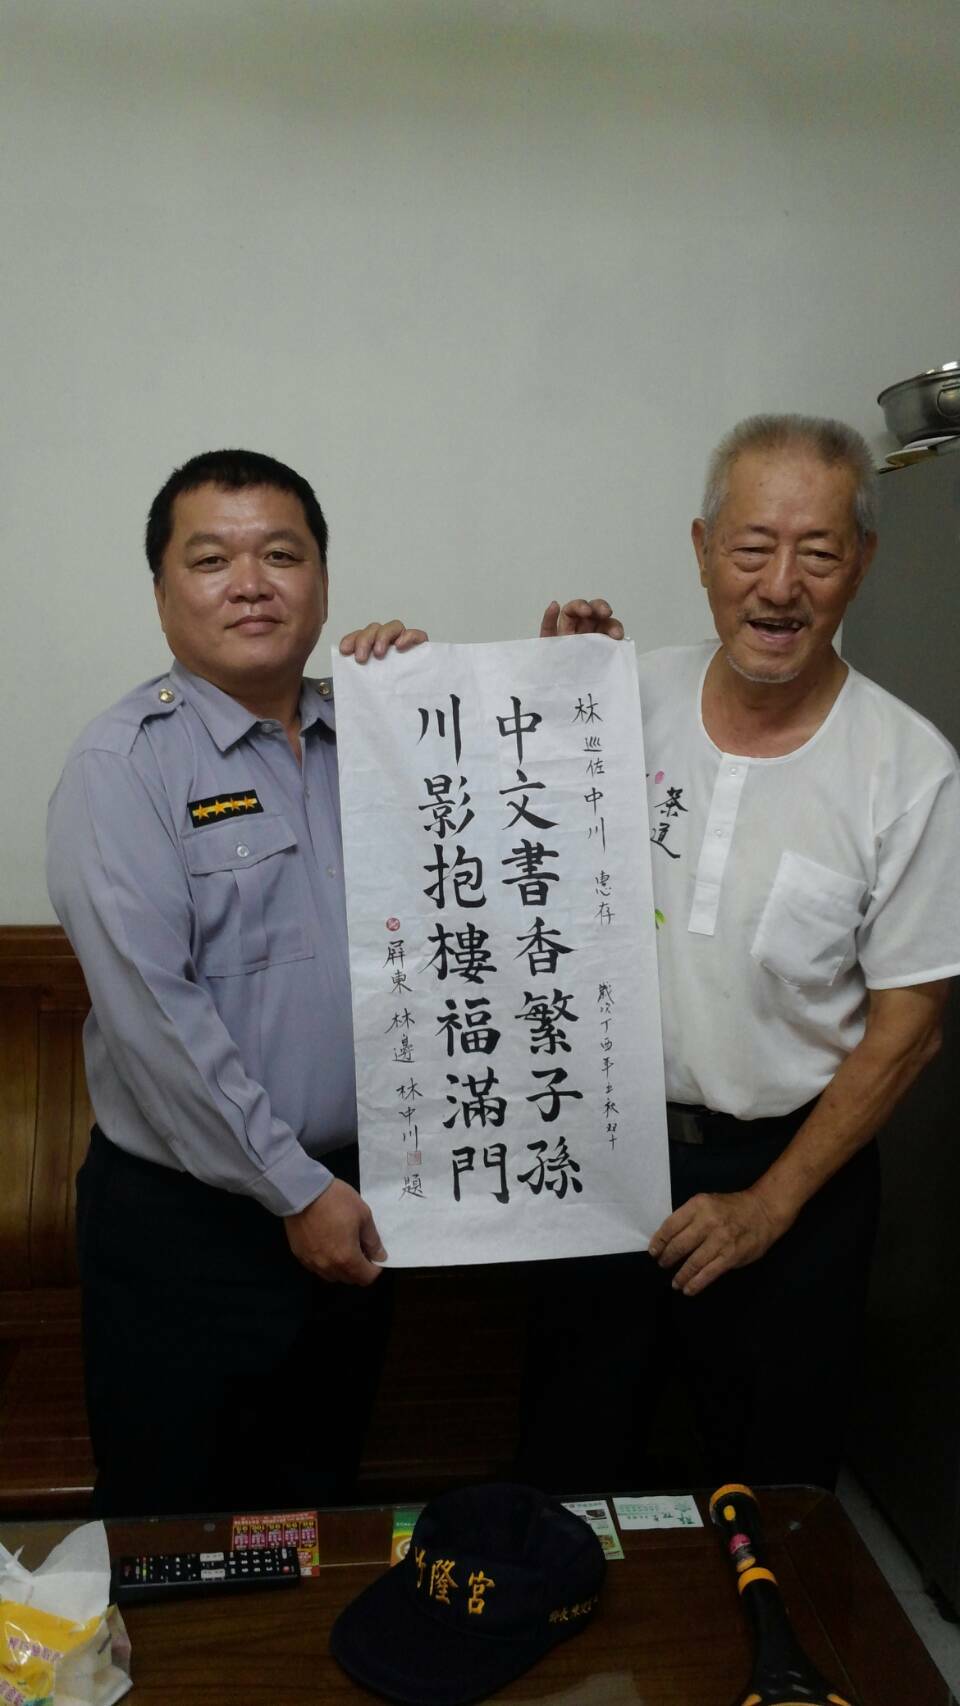 林巡佐中川 惠存 歲次丁酉年士秋双十
中文書香繁子孫
川影抱樓福滿門
屏東 林邊 林中川 題
茶道
隆宮